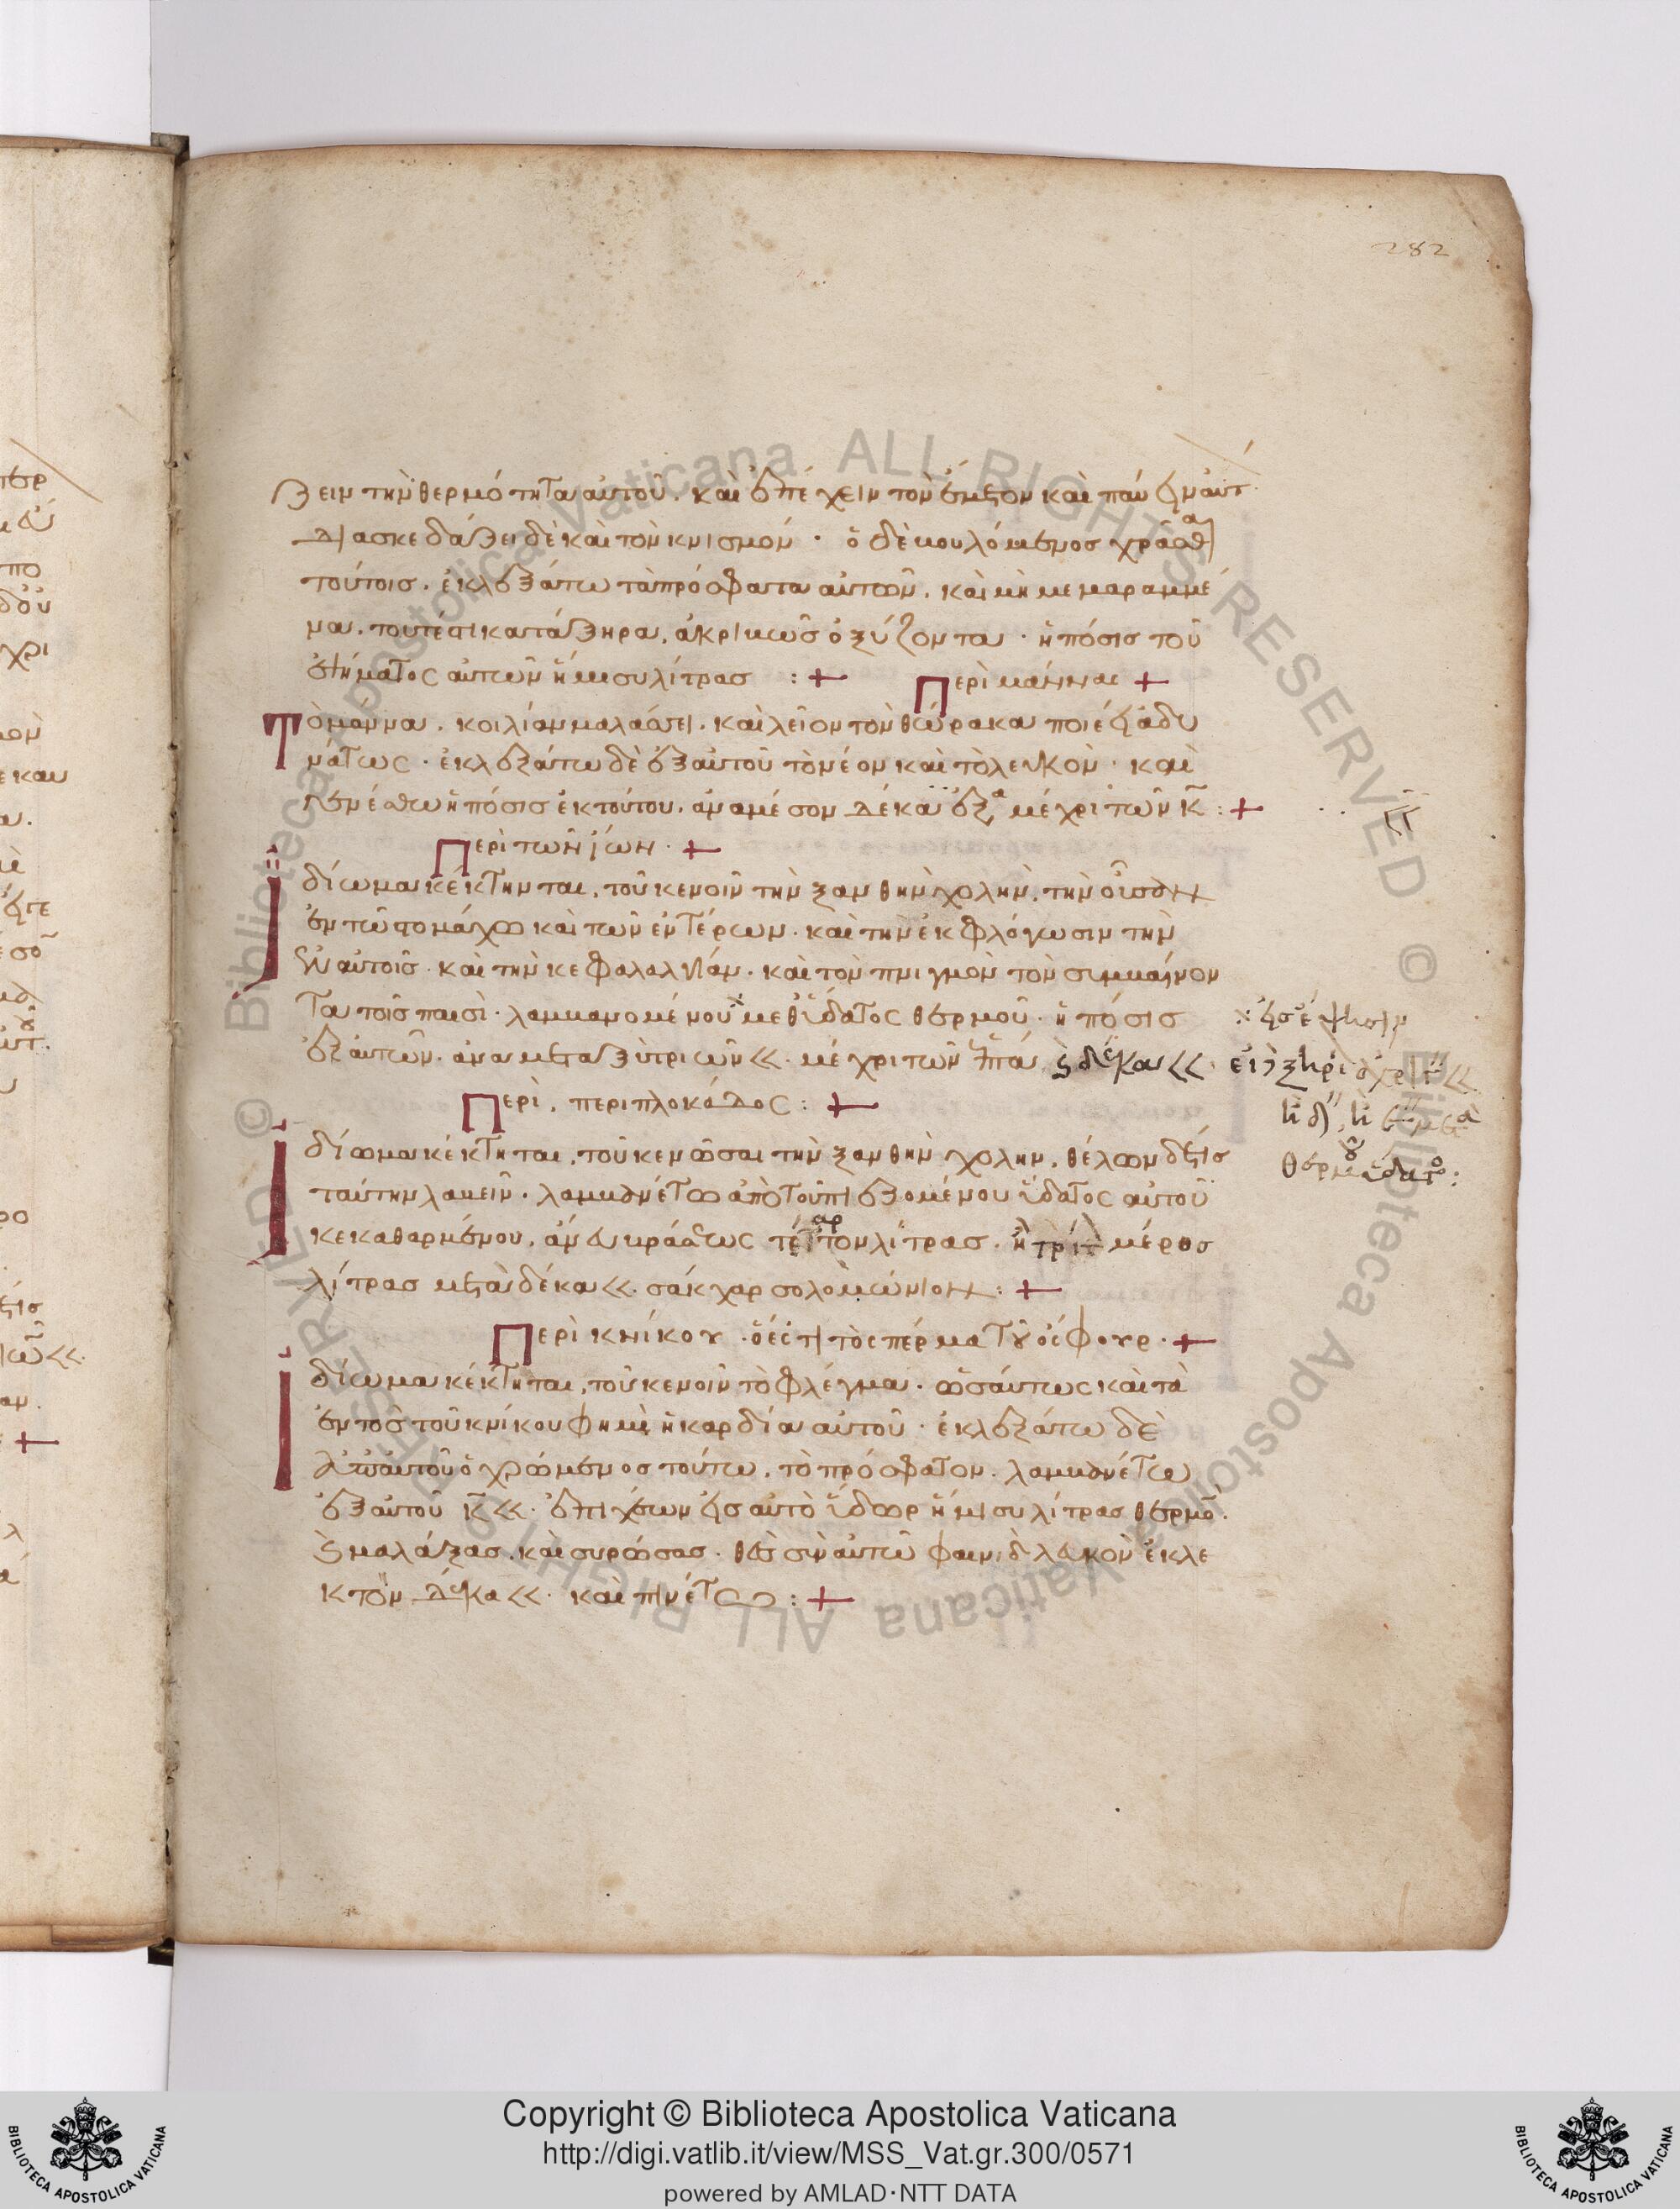 282
ζειν τὴν θερμότητα αὐτοῦ. καὶ ἐπέχειν τὸν ἔμετον καὶ παύειν αὐτ
διασκεδάζει δὲ καὶ τὸν κνισμόν · ὁ δὲ βουλόμενος χρᾶσθαι
τούτοις. ἐκλεξάτω τὰ πρόσφατα αὐτῶν. καὶ μὴ μεμαραμμέ
να. τουτέστι κατάξηρα, ἀκριβῶς ὀξύζοντα · ἡ πόσις τοῦ
ἑψήματος αὐτῶν ἥμισυ λίτρας :+ Περὶ μάννα +
Τὸ μάννα. κοιλίαν μαλάσσει. καὶ λεῖον τὸν θώρακα ποιεῖ ἀδυ
νάτως · ἐκλεξάτω δὲ ἐξ αὐτοῦ τὸ νέον καὶ τὸ λευκὸν · καὶ
γενέσθω ἡ πόσις ἐκ τούτου. ἀναμέσον δέκα ἑξα μέχρι τῶν κ :+
Περὶ τῶν ἴων · +
Ἰδίωμα κέκτηνται, τοῦ κενοῦν τὴν ξανθὴν χολὴν, τὴν οὖσαν
ἐν τῷ στομάχω καὶ τῶν ἐντέρων · καὶ τὴν ἐκφλόγωσιν τὴν
ἐν αὐτοῖς · καὶ τὴν κεφαλαλγίαν · καὶ τὸν πνιγμὸν τὸν συμβαίνον
τα τοῖς παισὶ · λαμβανομένου μεθ ὕδατος θερμοῦ · ἡ πόσις
ἐξ αὐτῶν · ἀναμεταξὺ τριῶν << · μέχρι τῶν ἑπτά ϗ δέκα <<
Περὶ, περιπλοκάδος :+
Ἰδίωμα κέκτηται, τοῦ κενῶσαι τὴν ξανθὴν χολην, θέλων δέ τις
ταύτην λαβεῖν · λαμβανέτω ἀπὸ τοῦ πιεζομένου ὕδατος αὐτοῦ
κεκαθαρμένου, ἄνευ βράσεως τέταρτον λίτρας · ἢ τρίτ μέρος
λίτρας μετὰ δέκα << · σάκχαρ σολομώνιον :+
Περὶ κνίκου · ὅ ἐστι τὸ σπέρμα τοῦ ὀσφουρ · +
Ἰδίωμα κέκτηται, τοῦ κενοῦν τὸ φλέγμα · ὡσαύτως καὶ τὰ
ἐντὸς τοῦ κνίκου φημὶ ἡ καρδία αὐτοῦ · ἐκλεξάτω δὲ
ἀπὸ αὐτοῦ ὁ χρώμενος τούτω, τὸ πρόσφατον · λαμβανέτω
ἐξ αὐτοῦ κ << · ἐπιχέων εἰς αὐτὸ ὕδωρ ἥμισυ λίτρας θερμο ·
ϗ μαλάξας, καὶ συρώσας · θὲς σὺν αὐτῶ φαινιδ λευκὸν ἐκλε
κτὸν δέκα << · καὶ πινέτω :+
εἰς ἕψησιν
θερμοῦ ὕδατος :
Copyright © Biblioteca Apostolica Vaticana
http://digi.vatlib.it/view/MSS_Vat.gr.300/0571
powered by AMLAD·NTT DATA
BIBLIOTECA APOSTOLICA VATICANA
BIBLIOTECA APOSTOLICA VATICANA
© Biblioteca Apostolica Vaticana ALL RIGHTS RESERVED
© Biblioteca Apostolica Vaticana ALL RIGHTS RESERVED